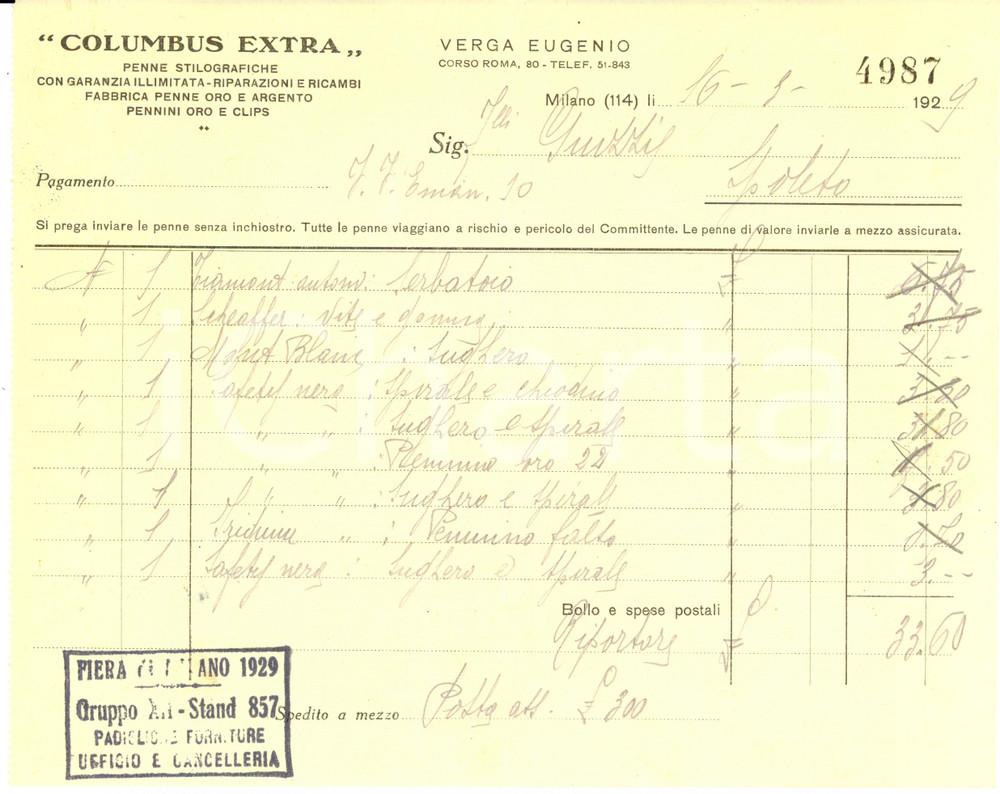 "COLUMBUS EXTRA„
PENNE STILOGRAFICHE
CON GARANZIA ILLIMITATA - RIPARAZIONI E RICAMBI
FABBRICA PENNE ORO E ARGENTO
PENNINI ORO E CLIPS
VERGA EUGENIO
CORSO ROMA, 80 - TELEF. 51-843
4987
Milano (114) li 16 - 5 - 1929
Sig. Flli
Spoleto
Pagamento
Si prega inviare le penne senza inchiostro. Tutte le penne viaggiano a rischio e pericolo del Committente. Le penne di valore inviarle a mezzo assicurata.
1 Serbatoio
„ 1 Scheaffer : Vite e gomma „
„ 1 Mont Blanc : Sughero „ 1.--
„ 1 Safety nero : Spirale e chiodino „ 3.80
„ 1 „ „ : Sughero e spirale „ 3.80
„ 1 „ „ : Pennino oro 22 „ .50
„ 1 „ „ : Sughero e spirale „ 3.80
„ 1 „ : Pennino falto „ .70
„ 1 Safety nero : Sughero e spirale „ 3.--
Bollo e spese postali
Riportare 33.60
FIERA DI MILANO 1929
Gruppo XII - Stand 857
PADIGLIONE FORNITURE
UFFICIO E CANCELLERIA
Spedito a mezzo Posta ass. £ 300